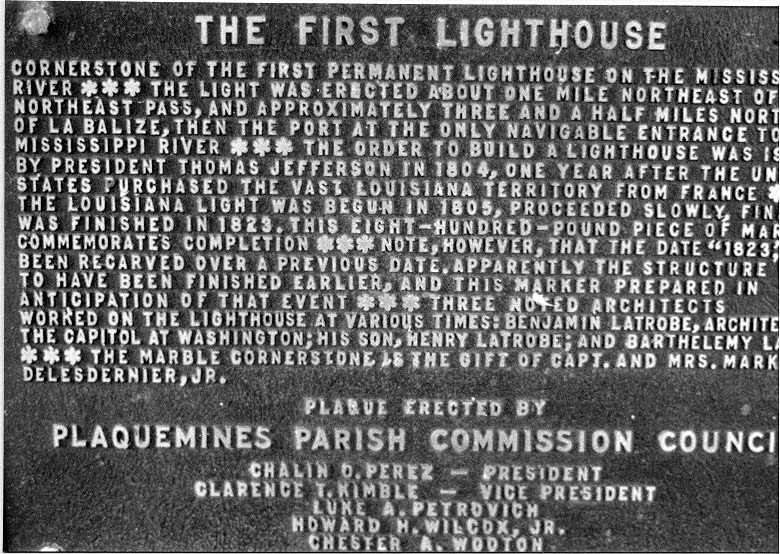 THE FIRST LIGHTHOUSE
CORNERSTONE OF THE FIRST PERMANENT LIGHTHOUSE ON THE MISSISS
RIVER *** THE LIGHT WAS ERECTED ABOUT ONE MILE NORTHEAST OF
NORTHEAST PASS, AND APPROXIMATELY THREE AND A HALF MILES NORT
OF LA BALIZE, THEN THE PORT AT THE ONLY NAVIGABLE ENTRANCE TO
MISSISSIPPI RIVER *** THE ORDER TO BUILD A LIGHTHOUSE WAS IS
BY PRESIDENT THOMAS JEFFERSON IN 1804, ONE YEAR AFTER THE UN
STATES PURCHASED THE VAST LOUISIANA TERRITORY FROM FRANCE *
THE LOUISIANA LIGHT WAS BEGUN IN 1805, PROCEEDED SLOWLY, FIN
WAS FINISHED IN 1823. THIS EIGHT-HUNDRED-POUND PIECE OF MAR
COMMEMORATES COMPLETION *** NOTE, HOWEVER, THAT THE DATE "1823,
BEEN RECARVED OVER A PREVIOUS DATE. APPARENTLY THE STRUCTURE
TO HAVE BEEN FINISHED EARLIER, AND THIS MARKER PREPARED IN
ANTICIPATION OF THAT EVENT *** THREE NOTED ARCHITECTS
WORKED ON THE LIGHTHOUSE AT VARIOUS TIMES: BENJAMIN LATROBE, ARCHITE
THE CAPITOL AT WASHINGTON; HIS SON, HENRY LATROBE; AND BARTHELEMY LA
*** THE MARBLE CORNERSTONE IS THE GIFT OF CAPT. AND MRS. MARK
DELESDERNIER, JR.
PLAQUE ERECTED BY
PLAQUEMINES PARISH COMMISSION COUNCI
CHALIN O. PEREZ — PRESIDENT
CLARENCE T. KIMBLE — VICE PRESIDENT
LUKE A. PETROVICH
HOWARD H. WILCOX, JR.
CHESTER A. WOOTON